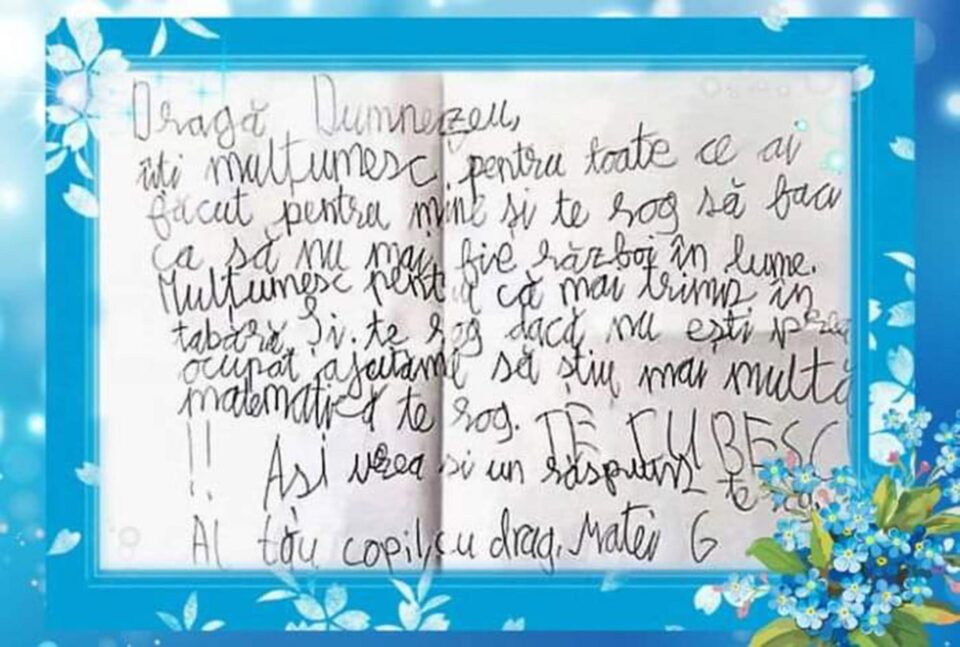 Dragă Dumnezeu,
îți mulțumesc pentru toate ce ai
făcut pentru mine și te rog să faci
ca să nu mai fie război în lume.
Mulțumesc pentru că mai trimis în
tabără. Și te rog dacă nu ești prea
ocupat ajutame să știu mai multă
matematică te rog. TE IUBESC
!! Asi vrea si un răspuns te rog
Al tău copil, cu drag, Matei G